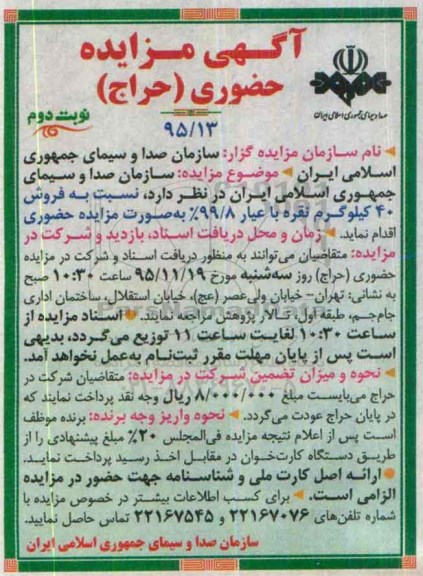 آگهی مزایده
حضوری (حراج)
صدا و سیمای جمهوری اسلامی ایران
نوبت دوم
۹۵/۱۳
نام سازمان مزایده گزار: سازمان صدا و سیمای جمهوری
اسلامی ایران موضوع مزایده: سازمان صدا و سیمای
جمهوری اسلامی ایران در نظر دارد، نسبت به فروش
۴۰ کیلوگرم نقره با عیار ۹۹/۸٪ به‌صورت مزایده حضوری
اقدام نماید. زمان و محل دریافت اسناد، بازدید و شرکت در
مزایده: متقاضیان می‌توانند به منظور دریافت اسناد و شرکت در مزایده
حضوری (حراج) روز سه‌شنبه مورخ ۹۵/۱۱/۱۹ ساعت ۱۰:۳۰ صبح
به نشانی: تهران- خیابان ولی‌عصر (عج)، خیابان استقلال، ساختمان اداری
جام‌جم، طبقه اول، تالار پژوهش مراجعه نمایند. اسناد مزایده از
ساعت ۱۰:۳۰ لغایت ساعت ۱۱ توزیع می‌گردد، بدیهی
است پس از پایان مهلت مقرر ثبت‌نام به‌عمل نخواهد آمد.
نحوه و میزان تضمین شرکت در مزایده: متقاضیان شرکت در
حراج می‌بایست مبلغ ۸/۰۰۰/۰۰۰ ریال وجه نقد پرداخت نمایند که
در پایان حراج عودت می‌گردد. نحوه واریز وجه برنده: برنده موظف
است پس از اعلام نتیجه مزایده فی‌المجلس ۲۰٪ مبلغ پیشنهادی را از
طریق دستگاه کارت‌خوان در مقابل اخذ رسید پرداخت نماید.
ارائه اصل کارت ملی و شناسنامه جهت حضور در مزایده
الزامی است. برای کسب اطلاعات بیشتر در خصوص مزایده با
شماره تلفن‌های ۲۲۱۶۷۰۷۶ و ۲۲۱۶۷۵۴۵ تماس حاصل نمایید.
سازمان صدا و سیمای جمهوری اسلامی ایران